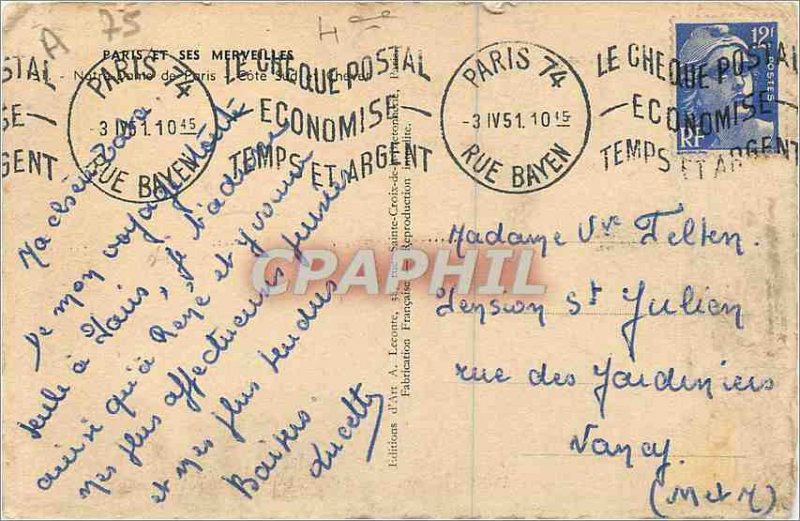 A 75
PARIS ET SES MERVEILLES
Notre-Dame de Paris - Côté Sud et Chevet
PARIS 74
-3 IV 51. 10 45
RUE BAYEN
LE CHEQUE POSTAL
ECONOMISE
TEMPS ET ARGENT
PARIS 74
-3 IV 51. 10 15
RUE BAYEN
LE CHEQUE POSTAL
ECONOMISE
TEMPS ET ARGENT
STAL
SE
GENT
12F
POSTES
RF
Ma chère
De mon voyage
seule à Paris, je t'adresse
ainsi qu'à René et Yvonne
mes plus affectueuses pensées
et mes plus tendres
Baisers.
Lucette
Editions d'Art A. Leconte, 38, rue Sainte-Croix-de-la-Bretonnerie, Paris
Fabrication Française - Reproduction interdite.
Madame Vve Felten.
Pension St Julien
rue des Jardiniers
Nancy
(M et M)
CPAPHIL